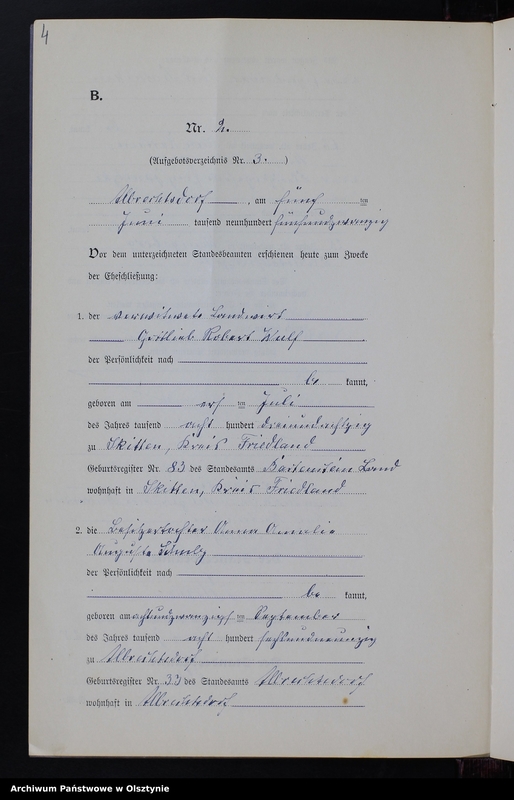 4
B.
Nr. 2.
(Aufgebotsverzeichnis Nr. 3.)
Albrechtsdorf, am fünf ten
Juni tausend neunhundert fünfundzwanzig
Vor dem unterzeichneten Standesbeamten erschienen heute zum Zwecke
der Eheschließung:
1. der verwitwete Landwirt
Gottlieb Robert Wulf
der Persönlichkeit nach
be kannt,
geboren am ers ten Juli
des Jahres tausend acht hundert dreiundachtzig
zu Skitten, Kreis Friedland
Geburtsregister Nr. 83 des Standesamts Bartenstein Land
wohnhaft in Skitten, Kreis Friedland
2. die Besitzertochter Anna Amalie
Auguste
der Persönlichkeit nach
be kannt,
geboren am achtundzwanzigs ten September
des Jahres tausend acht hundert sechsundneunzig
zu Albrechtsdorf
Geburtsregister Nr. 33 des Standesamts Albrechtsdorf
wohnhaft in Albrechtsdorf
Archiwum Państwowe w Olsztynie